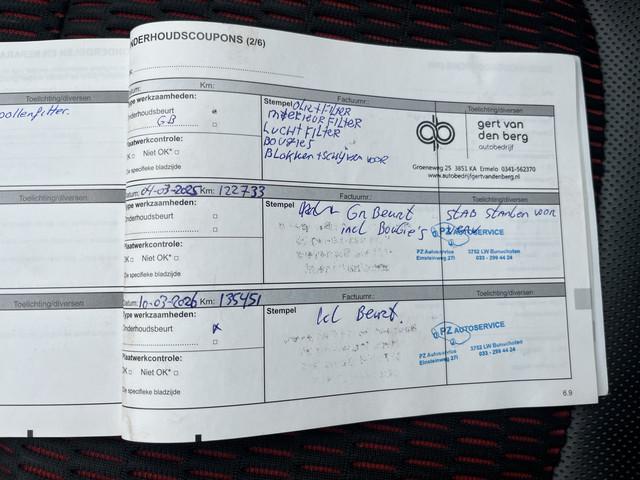 NDERHOUDSCOUPONS (2/6)
Toelichting/diversen
pollenfilter.
Toelichting/diversen
Toelichting/diversen
Km:
Factuurnr.:
Toelichting/diversen
Type werkzaamheden:
Onderhoudsbeurt
GB
Plaatwerkcontrole:
OK Niet OK*
De specifieke bladzijde
Stempel OLIEFILTER
INTERIEURFILTER
LUCHTFILTER
BOUGIES
BLOKKEN + SCHIJVEN VOOR
gert van
den berg
autobedrijf
Groeneweg 25 3851 KA Ermelo 0341-562370
www.autobedrijfgertvandenberg.nl
Datum: 04-03-2025 Km: 122733
Factuurnr.:
Toelichting/diversen
Type werkzaamheden:
Onderhoudsbeurt
Plaatwerkcontrole:
OK Niet OK*
De specifieke bladzijde
Stempel Gr Beurt
incl Bougie's
STAB STANGEN voor
PZ AUTOSERVICE
PZ Autoservice 3752 LW Bunschoten
Einsteinweg 27I 033 - 299 44 24
Datum: 10-03-2026 Km: 135451
Factuurnr.:
Toelichting/diversen
Type werkzaamheden:
Onderhoudsbeurt x
Plaatwerkcontrole:
OK Niet OK*
De specifieke bladzijde
Stempel kl Beurt.
PZ AUTOSERVICE
PZ Autoservice 3752 LW Bunschoten
Einsteinweg 27I 033 - 299 44 24
6.9